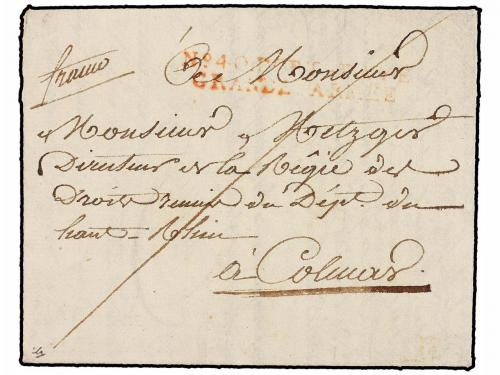 franco
A Monsieur
No. 40
GRANDE ARMÉE
Monsieur Metzger
Directeur de la Régie des
Droits reunis du Dépt. du
haut-Rhin
à Colmar.